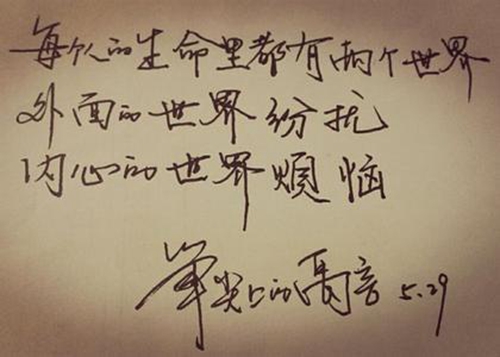 每个人的生命里都有两个世界
外面的世界纷扰
内心的世界煩恼
笔尖上的音 5.29